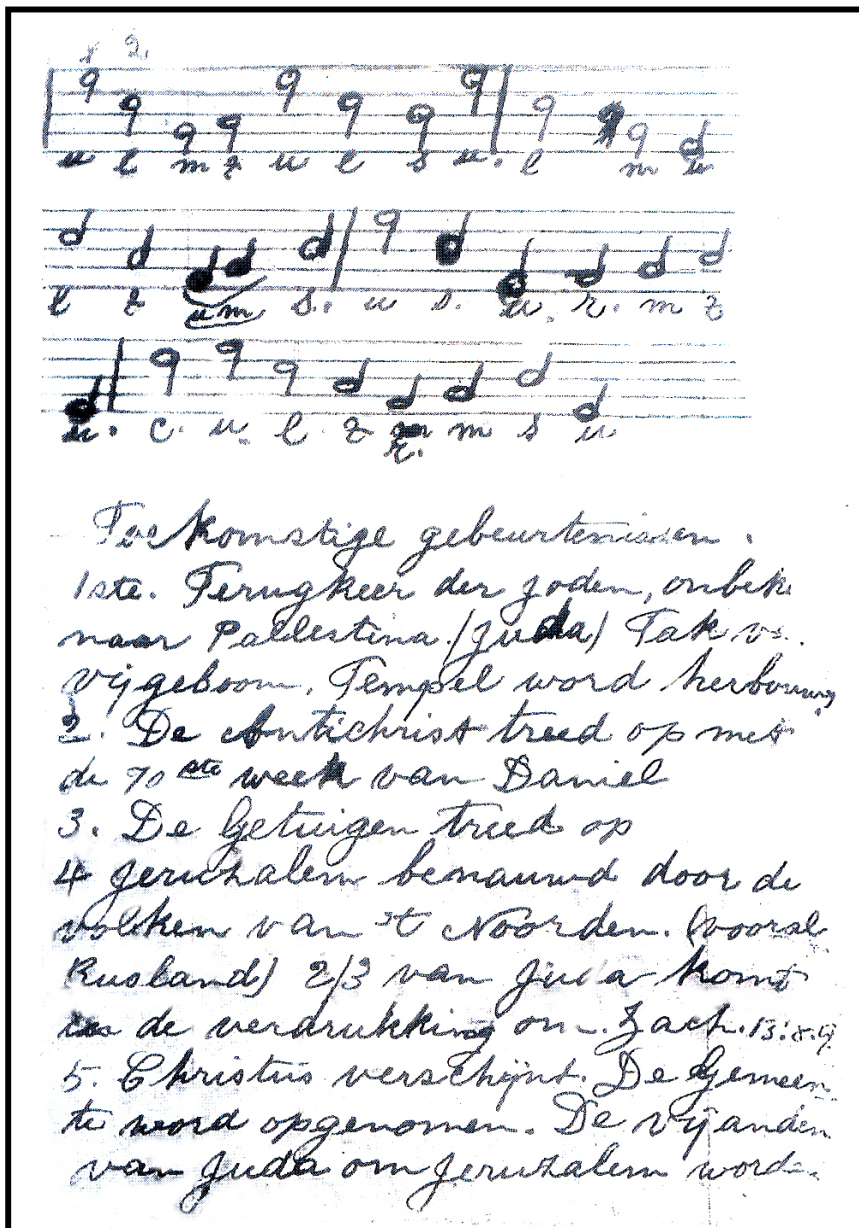 1 2
u l m z u l s u. l m u
l z u m s. u s. u. r. m z
u. c. u. l. z r. m s u
Toekomstige gebeurtenissen.
1ste. Terugkeer der Joden, onbeke
naar Palestina. (Juda) Tak v.
vijgeboom. Tempel word herbouwd
2. De Antichrist treed op met
de 70ste week van Daniel
3. De Getuigen treed op
4 Jeruzalem benauwd door de
volken van 't Noorden. (vooral
Rusland) 2/3 van Juda komt
in de verdrukking om. Zach. 13:8.9
5. Christus verschijnt. De Gemeen
te word opgenomen. De vijanden
van Juda om Jeruzalem worde